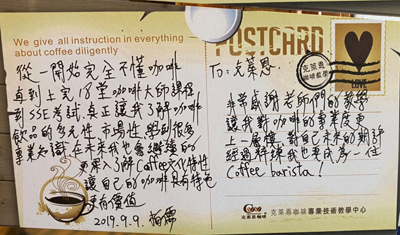 We give all instruction in everything
about coffee diligently
從一開始完全不懂咖啡
直到上完18堂咖啡大師課程
到SSE考試,真正讓我了解咖啡
飲品的多元性、市場性,學到很多
專業知識,在未來我也會繼續的
更深入了解Coffee文化特性
讓自己的咖啡具有特色
更有價值
2019.9.9.
POSTCARD
To: 克萊恩
克萊恩
咖啡教學
LOVE
非常感謝老師們的教學
讓我對咖啡的專業度更
上一層樓,對自己未來的期許
經過訓練我也要成為一位
Coffee barista!
克萊恩咖啡專業技術教學中心